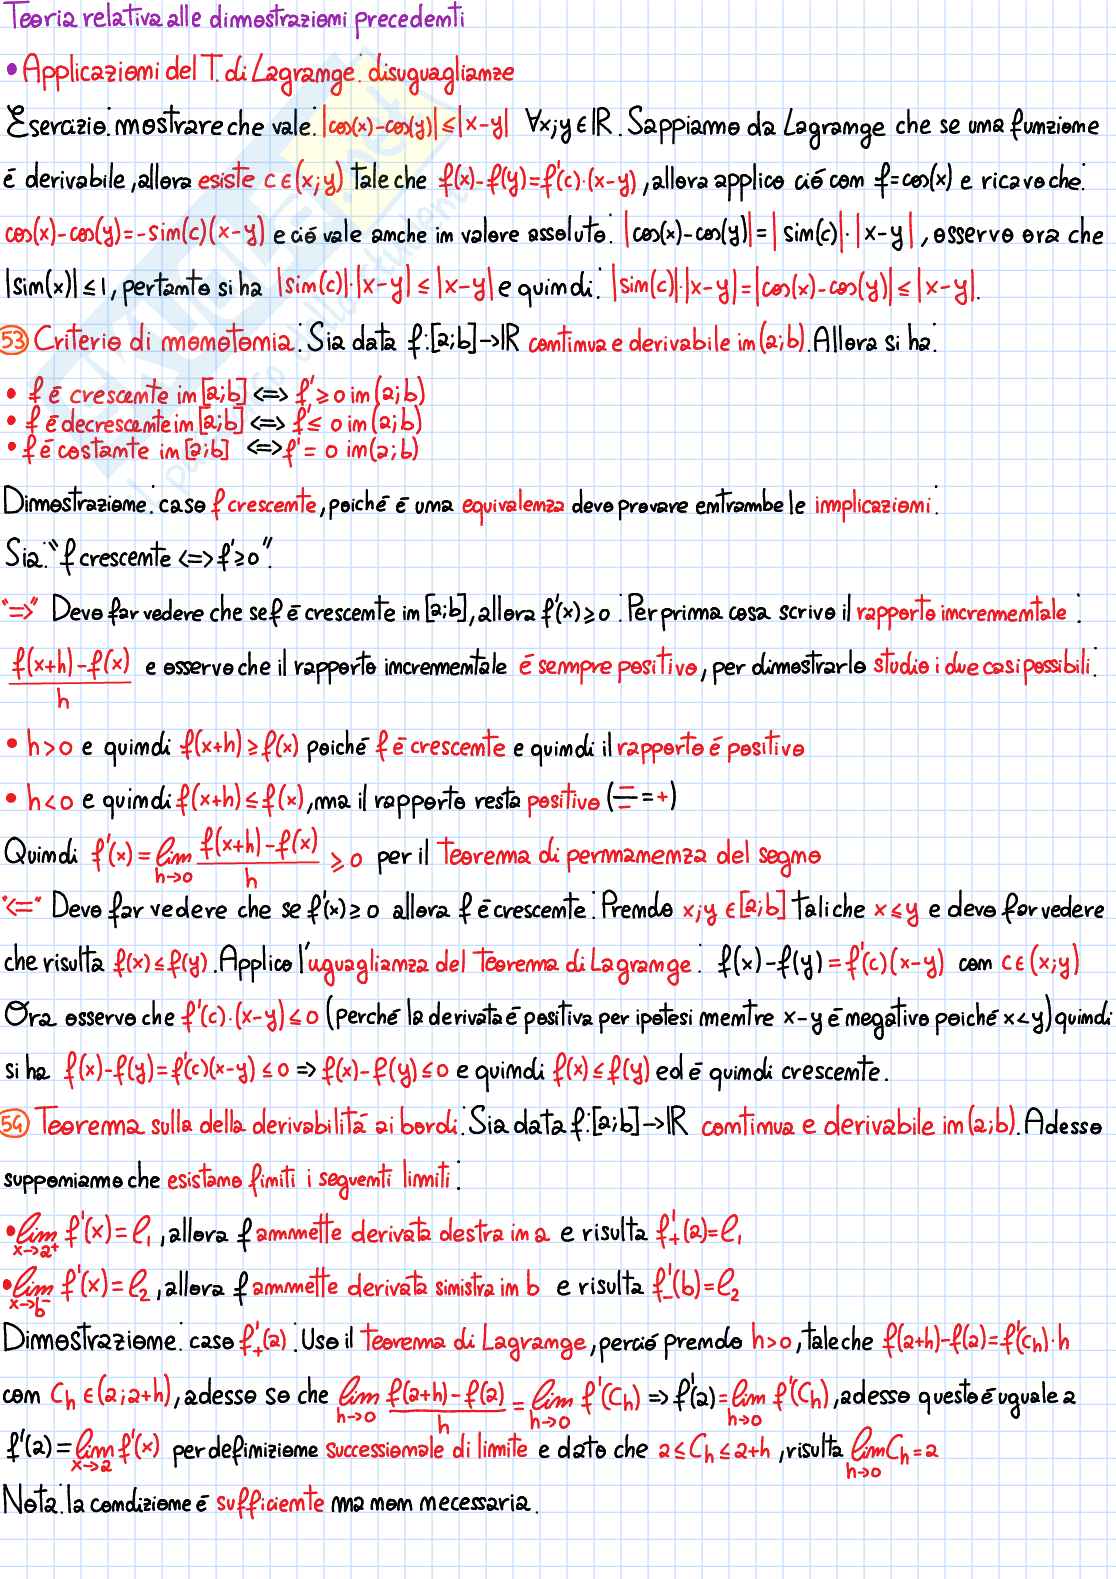 Teoria relativa alle dimostrazioni precedenti
• Applicazioni del T. di Lagrange: disuguaglianze
Esercizio: mostrare che vale: |cos(x)-cos(y)| ≤ |x-y| ∀x;y ∈ ℝ. Sappiamo da Lagrange che se una funzione
é derivabile, allora esiste c ∈ (x;y) tale che f(x)-f(y)=f'(c)·(x-y), allora applico ció con f=cos(x) e ricavo che:
cos(x)-cos(y)=-sin(c)(x-y) e ció vale anche in valore assoluto: |cos(x)-cos(y)|=|sin(c)|·|x-y|, osservo ora che
|sin(x)| ≤ 1, pertanto si ha |sin(c)|·|x-y| ≤ |x-y| e quindi: |sin(c)|·|x-y|=|cos(x)-cos(y)| ≤ |x-y|.
53 Criterio di monotonia: Sia data f:[a;b]→ℝ continua e derivabile in (a;b). Allora si ha:
• f é crescente in [a;b] <=> f' ≥ 0 in (a;b)
• f é decrescente in [a;b] <=> f' ≤ 0 in (a;b)
• f é costante in [a;b] <=> f' = 0 in (a;b)
Dimostrazione: caso f crescente, poiché é una equivalenza devo provare entrambe le implicazioni:
Sia: "f crescente <=> f' ≥ 0".
"=>" Devo far vedere che se f é crescente in [a;b], allora f'(x) ≥ 0: Per prima cosa scrivo il rapporto incrementale:
f(x+h)-f(x)/h e osservo che il rapporto incrementale é sempre positivo, per dimostrarlo studio i due casi possibili:
• h>0 e quindi f(x+h) ≥ f(x) poiché f é crescente e quindi il rapporto é positivo
• h<0 e quindi f(x+h) ≤ f(x), ma il rapporto resta positivo (-/- = +)
Quindi f'(x) = lim h→0 f(x+h)-f(x)/h ≥ 0 per il Teorema di permanenza del segno
"<=" Devo far vedere che se f'(x) ≥ 0 allora f é crescente: Prendo x;y ∈ [a;b] tali che x ≤ y e devo far vedere
che risulta f(x) ≤ f(y). Applico l'uguaglianza del Teorema di Lagrange: f(x)-f(y)=f'(c)(x-y) con c ∈ (x;y)
Ora osservo che f'(c)·(x-y) ≤ 0 (perché la derivata é positiva per ipotesi mentre x-y é negativo poiché x<y) quindi
si ha f(x)-f(y)=f'(c)(x-y) ≤ 0 => f(x)-f(y) ≤ 0 e quindi f(x) ≤ f(y) ed é quindi crescente.
54 Teorema sulla della derivabilitá ai bordi: Sia data f:[a;b]→ℝ continua e derivabile in (a;b). Adesso
supponiamo che esistano finiti i seguenti limiti:
• lim x→a⁺ f'(x) = l₁, allora f ammette derivata destra in a e risulta f'₊(a)=l₁
• lim x→b⁻ f'(x) = l₂, allora f ammette derivata sinistra in b e risulta f'₋(b)=l₂
Dimostrazione: caso f'₊(a): Uso il Teorema di Lagrange, perció prendo h>0, tale che f(a+h)-f(a)=f'(Ch)·h
con Ch ∈ (a;a+h), adesso so che lim h→0 f(a+h)-f(a)/h = lim h→0 f'(Ch) => f'(a)=lim h→0 f'(Ch), adesso questo é uguale a
f'(a) = lim x→a f'(x) per definizione successionale di limite e dato che a ≤ Ch ≤ a+h, risulta lim h→0 Ch = a
Nota: la condizione é sufficiente ma non necessaria.